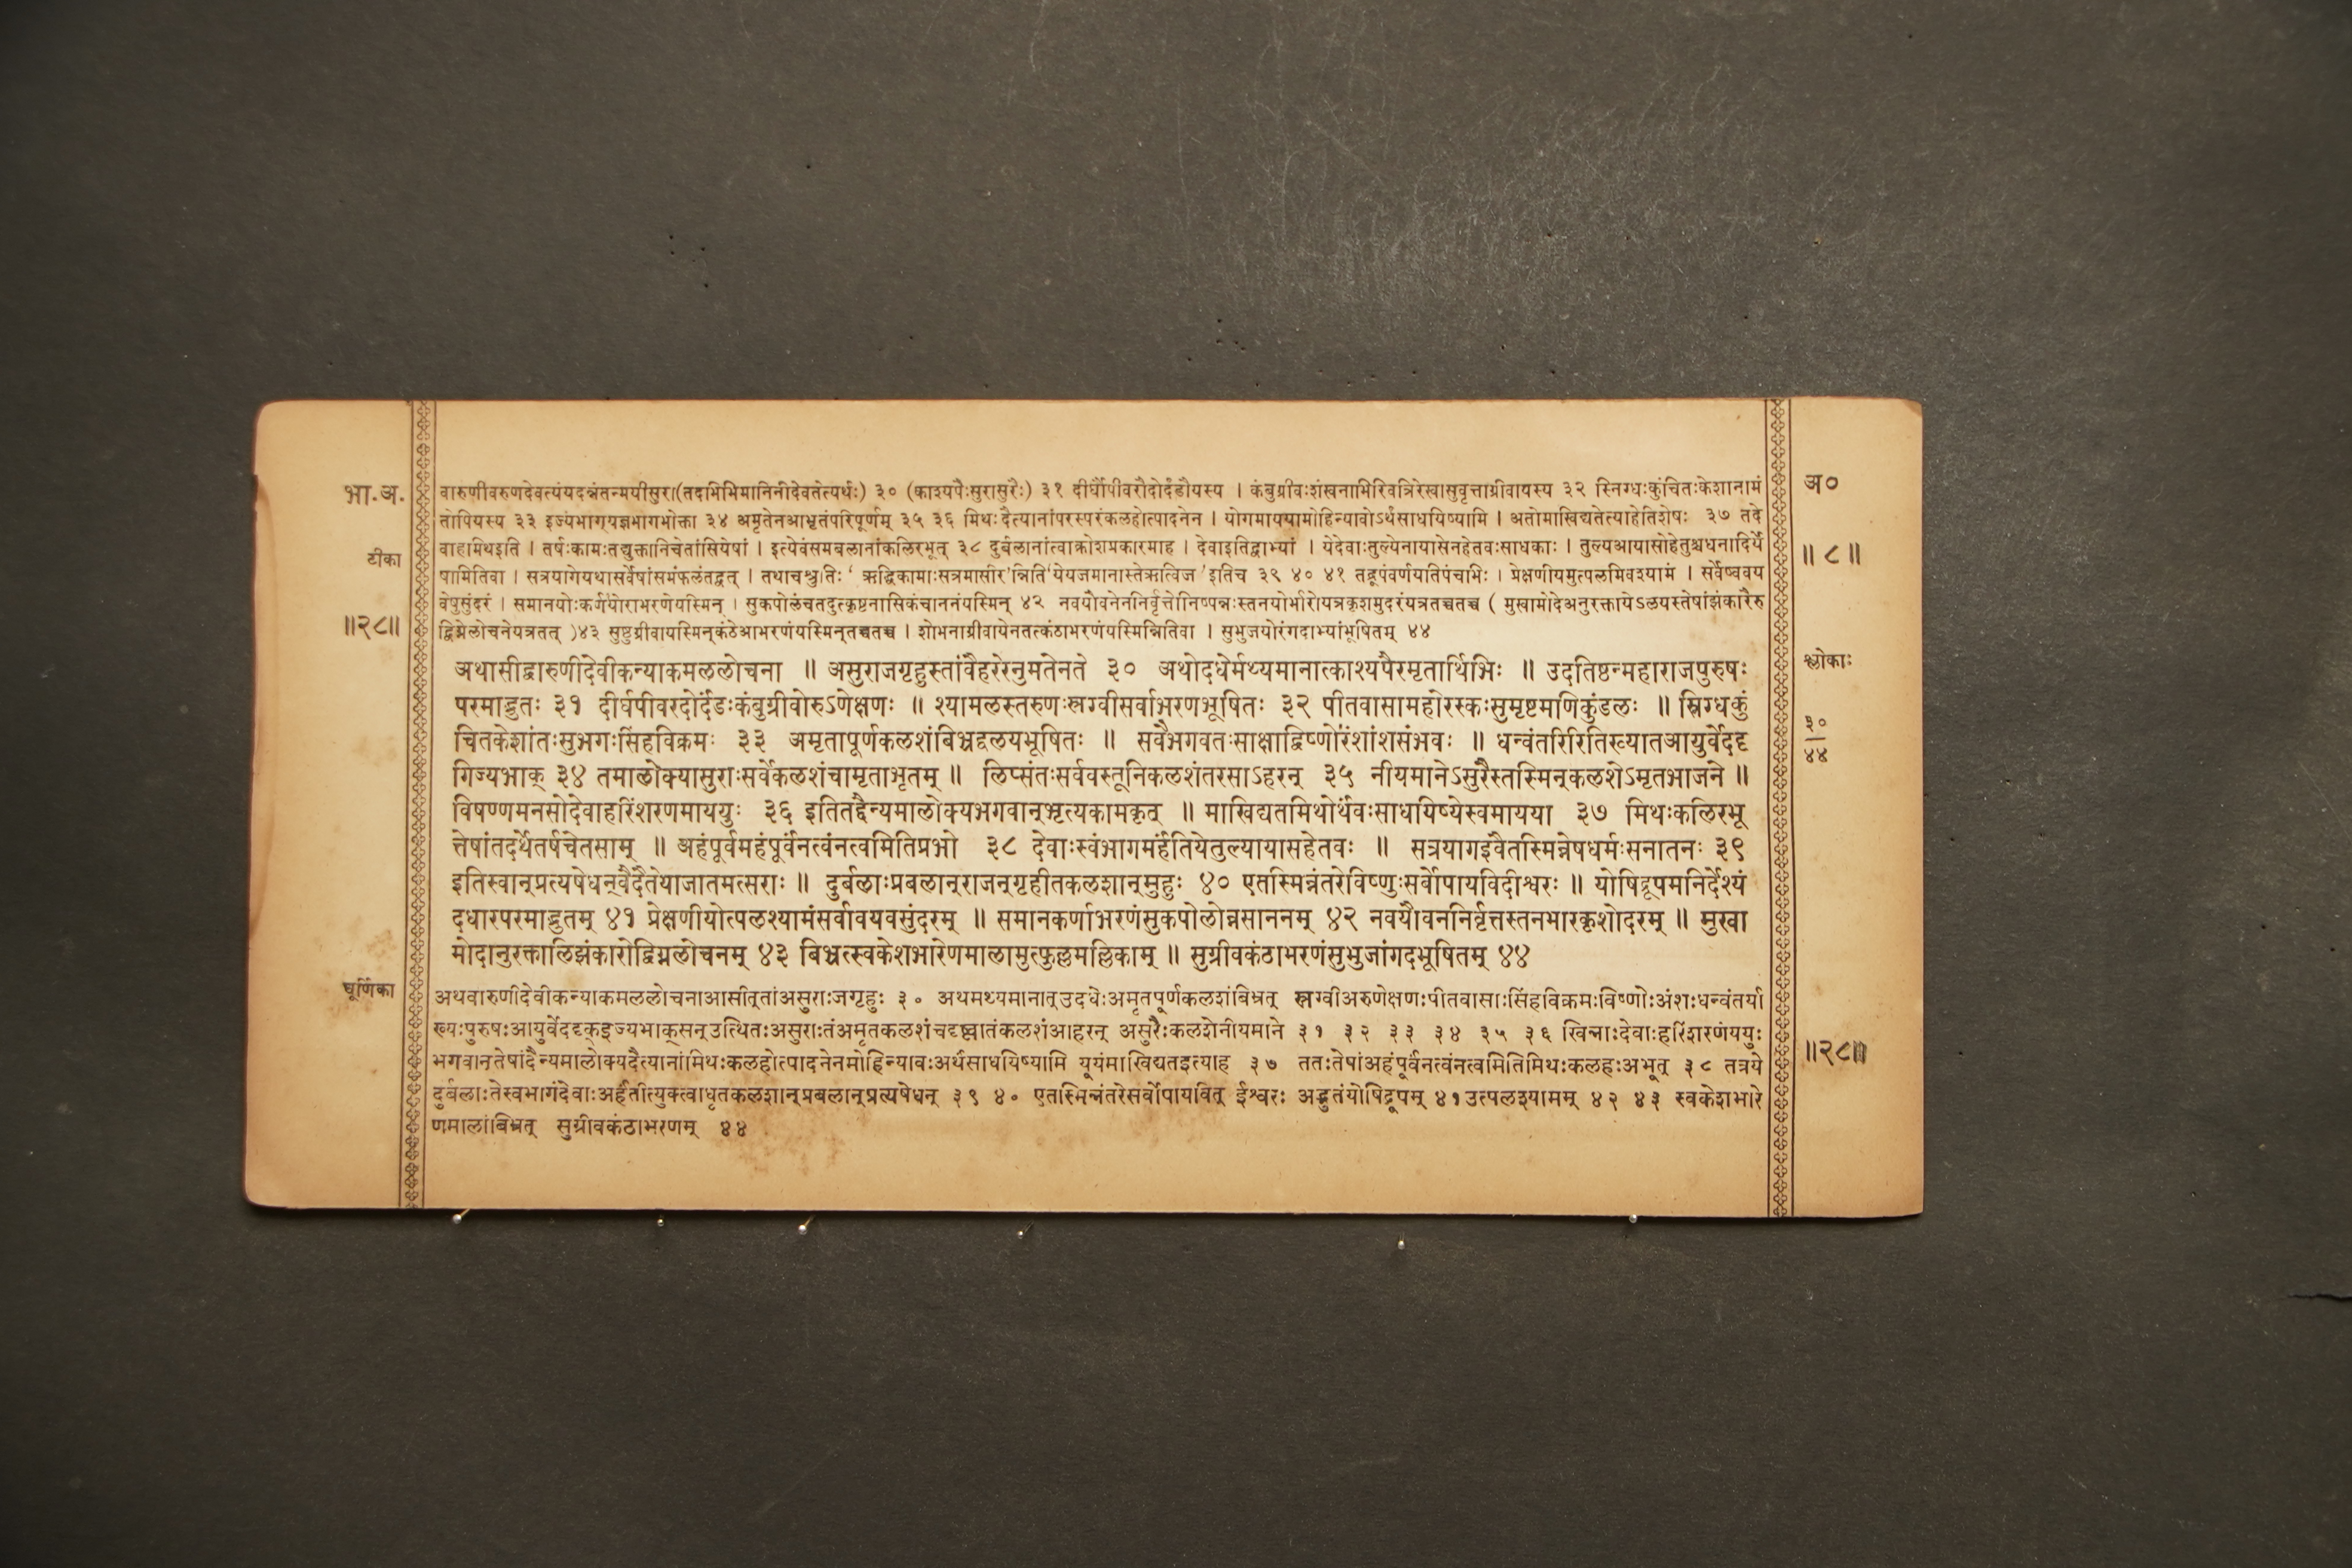 भा.अ.
टीका
॥२८॥
वारुणीवरुणदेवत्यंयदन्नंतन्मयीसुरा(तदभिभिमानिनीदेवतेत्यर्थः) ३० (काश्यपैःसुरासुरैः) ३१ दीर्घौपीवरौदोर्दंडौयस्य । कंबुग्रीवःशंखनाभिरिवत्रिरेखासुवृत्ताग्रीवायस्य ३२ स्निग्धःकुंचितःकेशानामं
तोपियस्य ३३ इज्यंभागयज्ञभागभोक्ता ३४ अमृतेनआभृतंपरिपूर्णम् ३५ ३६ मिथःदैत्यानांपरस्परंकलहोत्पादनेन । योगमाययामोहिन्यावोऽर्थंसाधयिष्यामि । अतोमाखिद्यतेत्याहेतिशेषः ३७ तदे
वाहामिथइति । तर्षःकामःतद्युक्तानिचेतांसियेषां । इत्येवंसमबलानांकलिरभूत् ३८ दुर्बलानांत्वाक्रोशप्रकारमाह । देवाइतिद्वाभ्यां । येदेवाःतुल्येनायासेनहेतवःसाधकाः । तुल्यआयासोहेतुश्चधनादिर्ये
षामितिवा । सत्रयागेयथासर्वेषांसमंफलंतद्वत् । तथाचश्रुतिः ‘ ऋद्धिकामाःसत्रमासीर’न्निति‘येयजमानास्तेऋत्विज ’इतिच ३९ ४० ४१ तद्रूपंवर्णयतिपंचाभिः । प्रेक्षणीयमुत्पलमिवश्यामं । सर्वेष्ववय
वेषुसुंदरं । समानयोःकर्णयोराभरणेयस्मिन् । सुकपोलंचतदुत्कृष्टनासिकंचाननंयस्मिन् ४२ नवयौवनेननिर्वृत्तोनिष्पन्नःस्तनयोर्भारोयत्रकृशमुदरंयत्रतच्चतच्च ( मुखामोदेअनुरक्तायेऽलयस्तेषांझंकारैरु
द्विग्नेलोचनेयत्रतत् )४३ सुष्ठुग्रीवायस्मिन्कंठेआभरणंयस्मिन्तच्चतच्च । शोभनाग्रीवायेनतत्कंठाभरणंयस्मिन्नितिवा । सुभुजयोरंगदाभ्यांभूषितम् ४४
अथासीद्वारुणीदेवीकन्याकमललोचना ॥ असुराजगृहुस्तांवैहरेरनुमतेनते ३० अथोदधेर्मथ्यमानात्काश्यपैरमृतार्थिभिः ॥ उदतिष्ठन्महाराजपुरुषः
परमाद्भुतः ३१ दीर्घपीवरदोर्दंडःकंबुग्रीवोरुऽणेक्षणः ॥ श्यामलस्तरुणःस्रग्वीसर्वाभरणभूषितः ३२ पीतवासामहोरस्कःसुमृष्टमणिकुंडलः ॥ स्निग्धकुं
चितकेशांतःसुभगःसिंहविक्रमः ३३ अमृतापूर्णकलशंबिभ्रद्वलयभूषितः ॥ सवैभगवतःसाक्षाद्विष्णोरंशांशसंभवः ॥ धन्वंतरिरितिख्यातआयुर्वेददृ
गिज्यभाक् ३४ तमालोक्यासुराःसर्वेकलशंचामृताभृतम् ॥ लिप्संतःसर्ववस्तूनिकलशंतरसाऽहरन् ३५ नीयमानेऽसुरैस्तस्मिन्कलशेऽमृतभाजने ॥
विषण्णमनसोदेवाहरिंशरणमाययुः ३६ इतितद्दैन्यमालोक्यभगवान्भृत्यकामकृत् ॥ माखिद्यतमिथोर्थंवःसाधयिष्येस्वमायया ३७ मिथःकलिरभू
त्तेषांतदर्थेतर्षचेतसाम् ॥ अहंपूर्वमहंपूर्वंनत्वंनत्वमितिप्रभो ३८ देवाःस्वंभागमर्हंतियेतुल्यायासहेतवः ॥ सत्रयागइवैतस्मिन्नेषधर्मःसनातनः ३९
इतिस्वान्प्रत्यषेधन्वैदैतेयाजातमत्सराः ॥ दुर्बलाःप्रबलान्राजन्गृहीतकलशान्मुहुः ४० एतस्मिन्नंतरेविष्णुःसर्वोपायविदीश्वरः ॥ योषिद्रूपमनिर्देश्यं
दधारपरमाद्भुतम् ४१ प्रेक्षणीयोत्पलश्यामंसर्वावयवसुंदरम् ॥ समानकर्णाभरणंसुकपोलोन्नसाननम् ४२ नवयौवननिर्वृत्तस्तनभारकृशोदरम् ॥ मुखा
मोदानुरक्तालिझंकारोद्विग्नलोचनम् ४३ बिभ्रत्स्वकेशभारेणमालामुत्फुल्लमल्लिकाम् ॥ सुग्रीवकंठाभरणंसुभुजांगदभूषितम् ४४
चूर्णिका
अथवारुणीदेवीकन्याकमललोचनाआसीत्तांअसुराःजगृहुः ३० अथमथ्यमानात्उदधेःअमृतपूर्णकलशंबिभ्रत् स्रग्वीअरुणेक्षणःपीतवासाःसिंहविक्रमःविष्णोःअंशःधन्वंतर्या
ख्यःपुरुषःआयुर्वेददृक्इज्यभाक्सन्उत्थितःअसुराःतंअमृतकलशंचदृष्ट्वातंकलशंआहरन् असुरैःकलशेनीयमाने ३१ ३२ ३३ ३४ ३५ ३६ खिन्नाःदेवाःहरिंशरणंययुः
भगवान्तेषांदैन्यमालोक्यदैत्यानांमिथःकलहोत्पादनेनमोहिन्यावःअर्थंसाधयिष्यामि यूयंमाखिद्यतइत्याह ३७ ततःतेषांअहंपूर्वंनत्वंनत्वमितिमिथःकलहःअभूत् ३८ तत्रये
दुर्बलाःतेस्वभागंदेवाःअर्हंतीत्युक्त्वाधृतकलशान्प्रबलान्प्रत्यषेधन् ३९ ४० एतस्मिन्नंतरेसर्वोपायवित् ईश्वरः अद्भुतंयोषिद्रूपम् ४१उत्पलश्यामम् ४२ ४३ स्वकेशभारे
णमालांबिभ्रत् सुग्रीवकंठाभरणम् ४४
अ०
॥८॥
श्लोकाः
३०
४४
॥२८॥